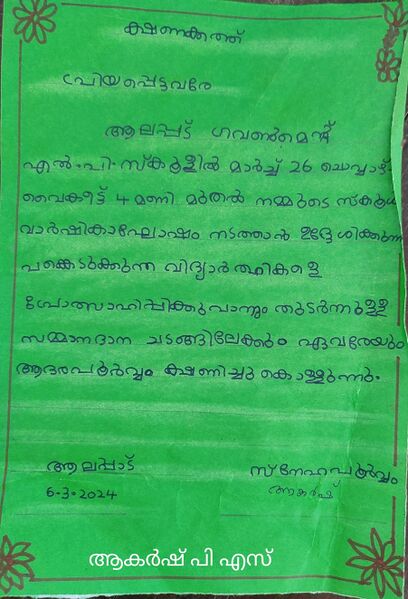 ക്ഷണക്കത്ത്
പ്രിയപ്പെട്ടവരേ
ആലപ്പാട് ഗവൺമെന്റ്
എൽ.പി.സ്കൂളിൽ മാർച്ച് 26 ചൊവ്വാഴ്
വൈകീട്ട് 4 മണി മുതൽ നമ്മുടെ സ്കൂൾ
വാർഷികാഘോഷം നടത്താൻ ഉദ്ദേശിക്കുന്നു
പങ്കെടുക്കുന്ന വിദ്യാർത്ഥികളെ
പ്രോത്സാഹിപ്പിക്കുവാനും തുടർന്നുള്ള
സമ്മാനദാന ചടങ്ങിലേക്കും ഏവരേയും
ആദരപൂർവ്വം ക്ഷണിച്ചു കൊള്ളുന്നു.
ആലപ്പാട്
6-3-2024
സ്നേഹപൂർവ്വം
ആകർഷ്
ആകർഷ് പി എസ്